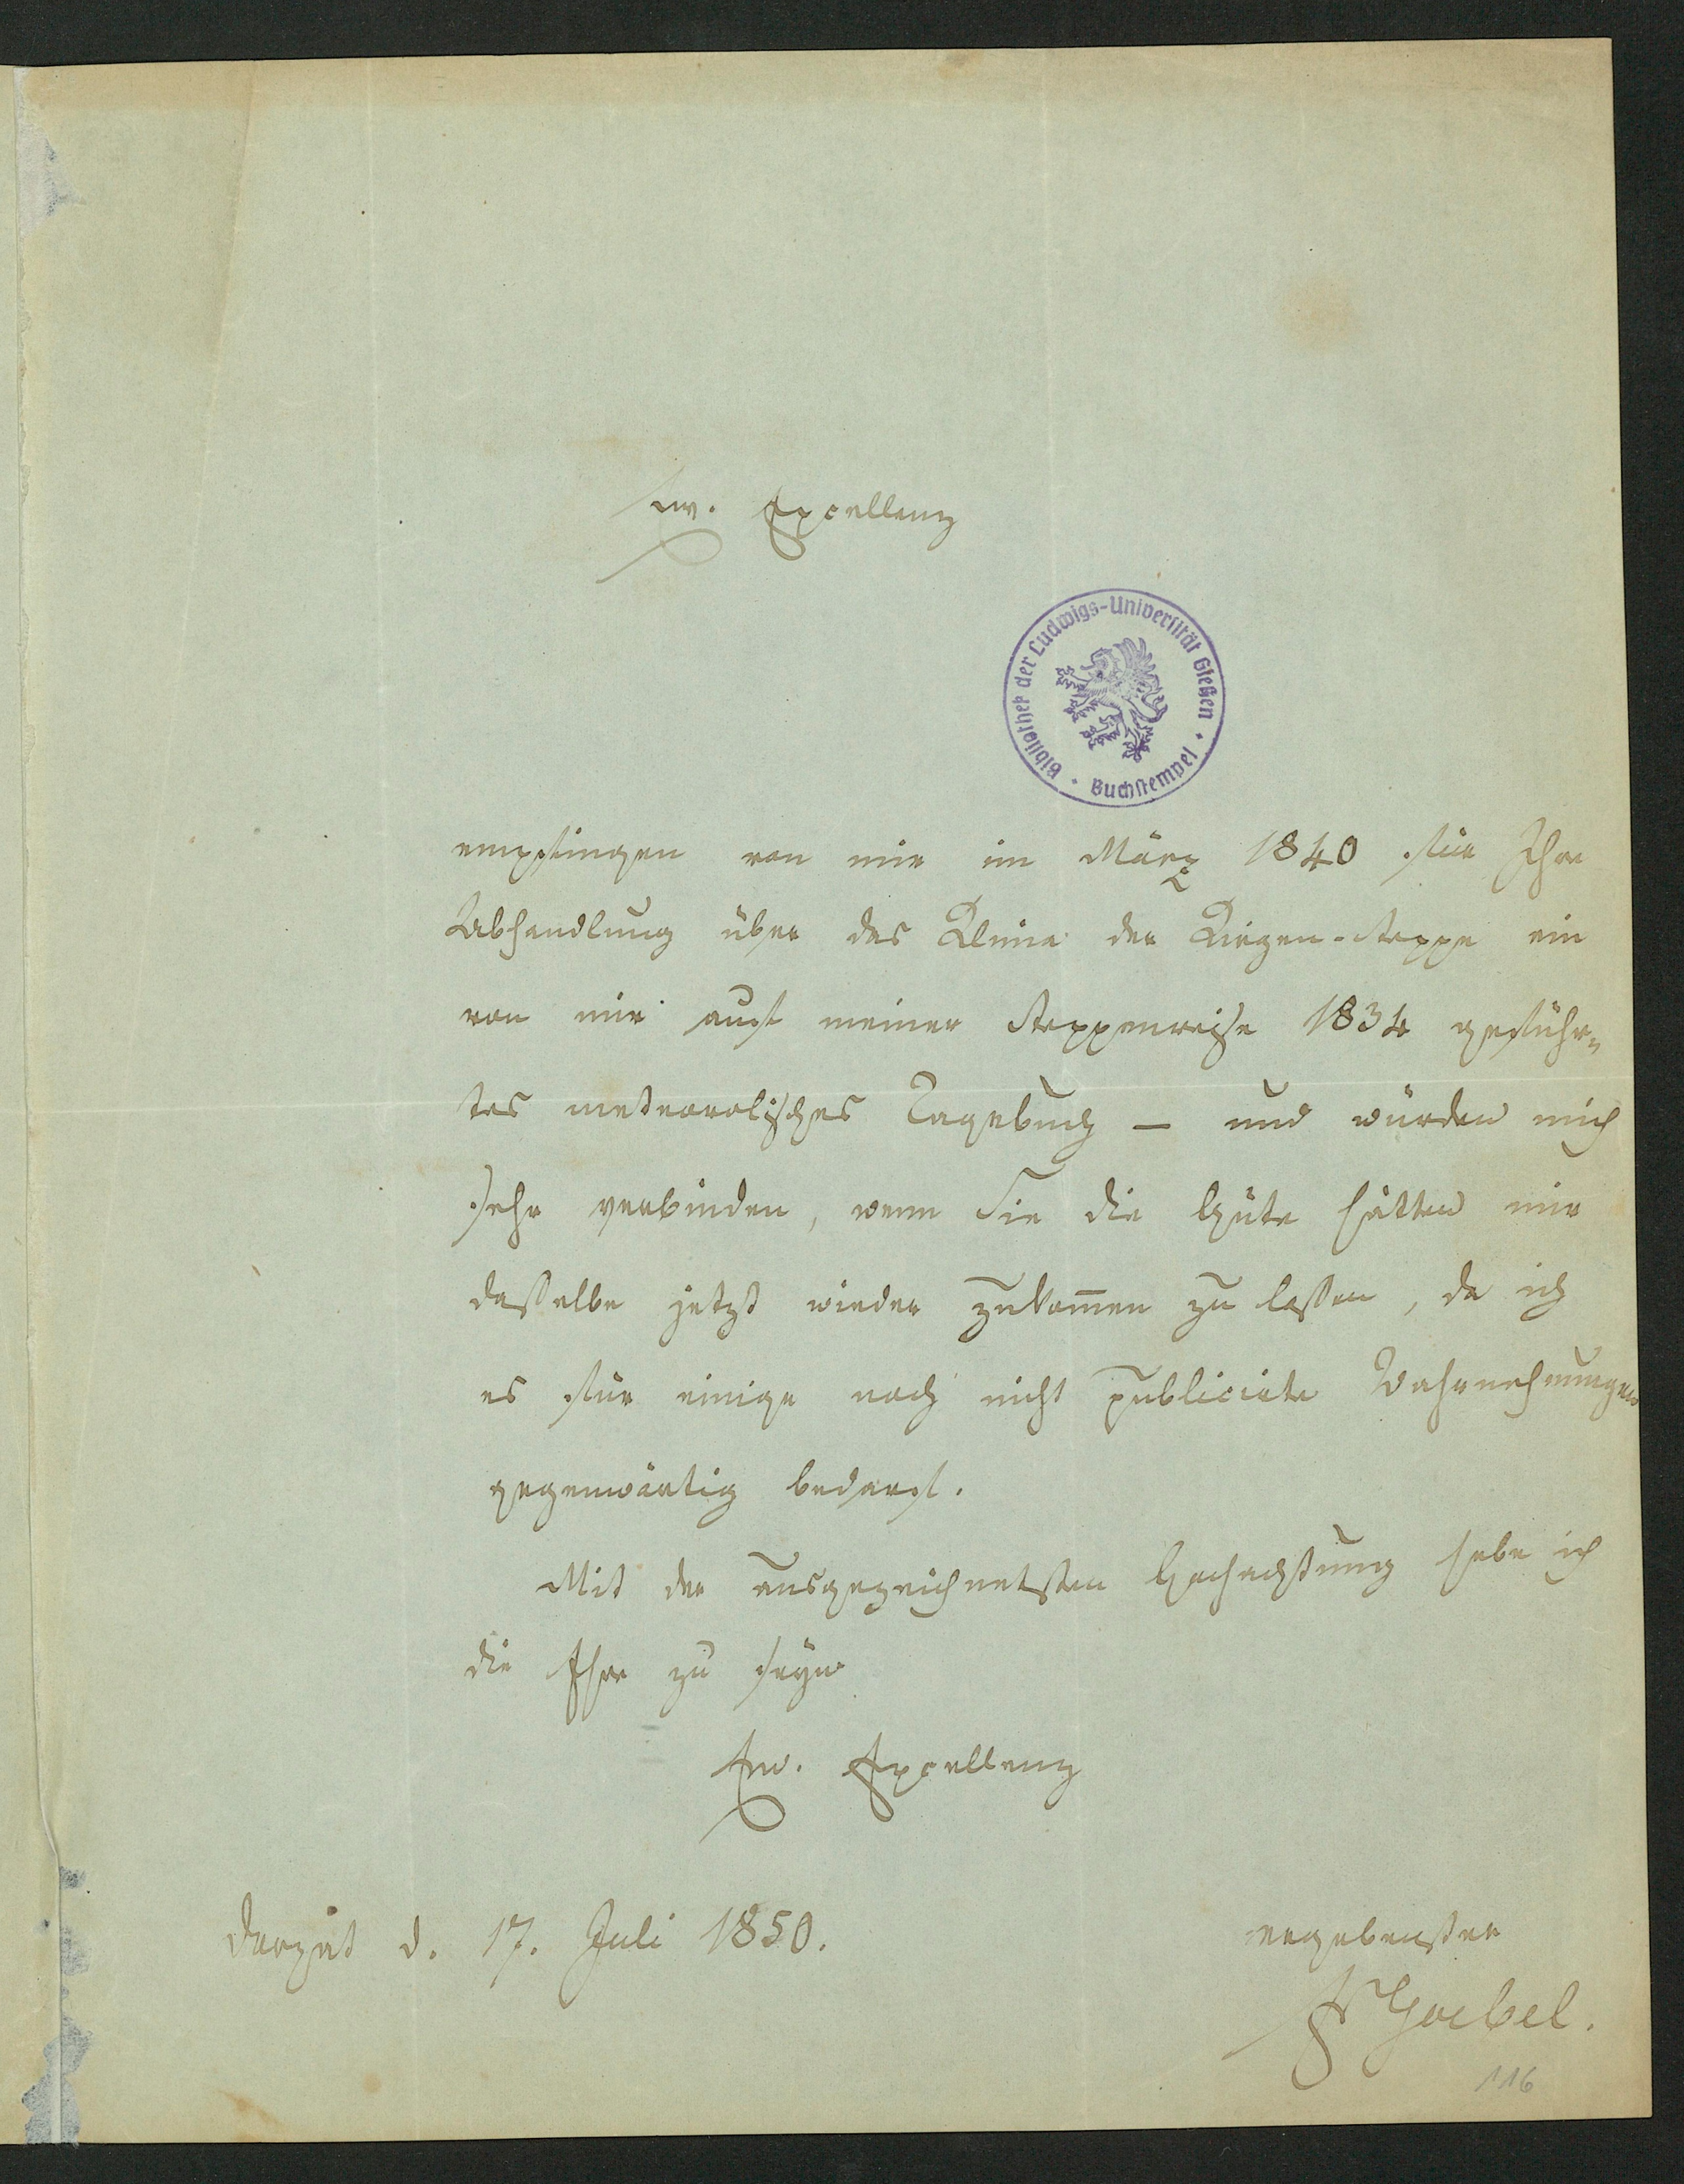 Ew. Excellenz
Bibliothek der Ludwigs-Universität Gießen · Buchstempel ·
empfingen von mir im März 1840 für Ihre
Abhandlung über das Klima der Kirgen-Steppe ein
von mir auf meiner Steppenreise 1834 geführ-
tes meteorolisches Tagebuch – und würden mich
sehr verbinden, wenn Sie die Güte hätten mir
dasselbe jetzt wieder zukommen zu lassen, da ich
es für einige noch nicht publicirte Wahrnehmungen
gegenwärtig bedarf.
Mit der ausgezeichnetsten Hochachtung habe ich
die Ehre zu seyn
Ew. Excellenz
Dorpat d. 17. Juli 1850.
ergebenster
Fr Goebel.
116